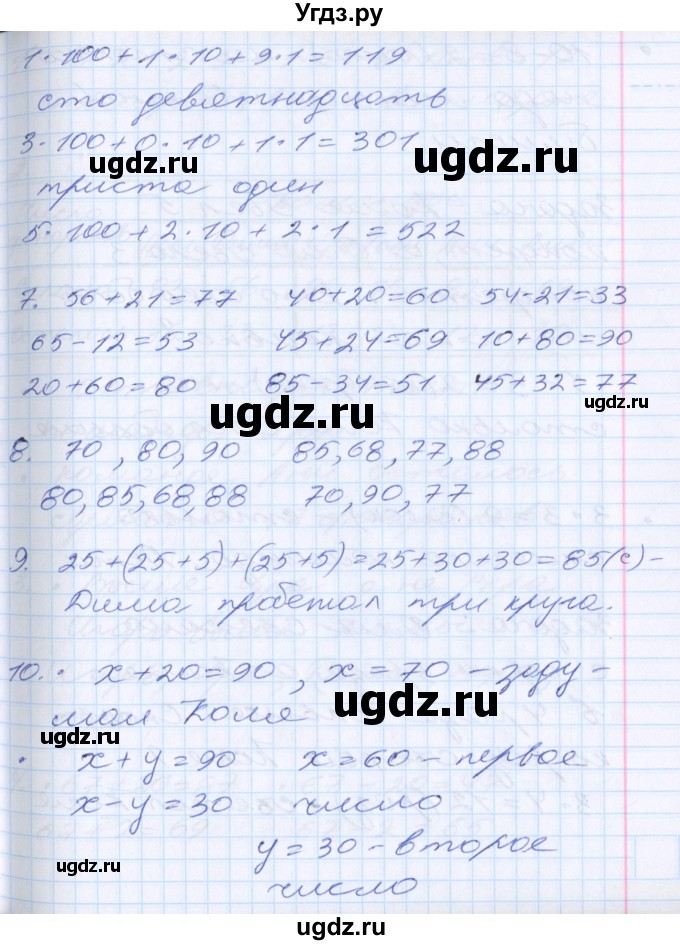 Угдз.ру
1·100+1·10+9·1=119
сто девятнадцать
3·100+0·10+1·1=301
ugdz.ru ugdz.ru
триста один
5·100+2·10+2·1=522
7. 56+21=77 40+20=60 54-21=33
65-12=53 45+24=69 10+80=90
20+60=80 85-34=51 45+32=77
ugdz.ru ugdz.ru
8. 70, 80, 90 85, 68, 77, 88
80, 85, 68, 88 70, 90, 77
9. 25+(25+5)+(25+5)=25+30+30=85(с)-
Дима пробежал три круга.
10. · x+20=90, x=70 - заду-
мал Коля
ugdz.ru ugdz.ru
· x+y=90 x=60 - первое
x-y=30 число
y=30 - второе
ugdz.ru
число
ugdz.ru
ugdz.ru